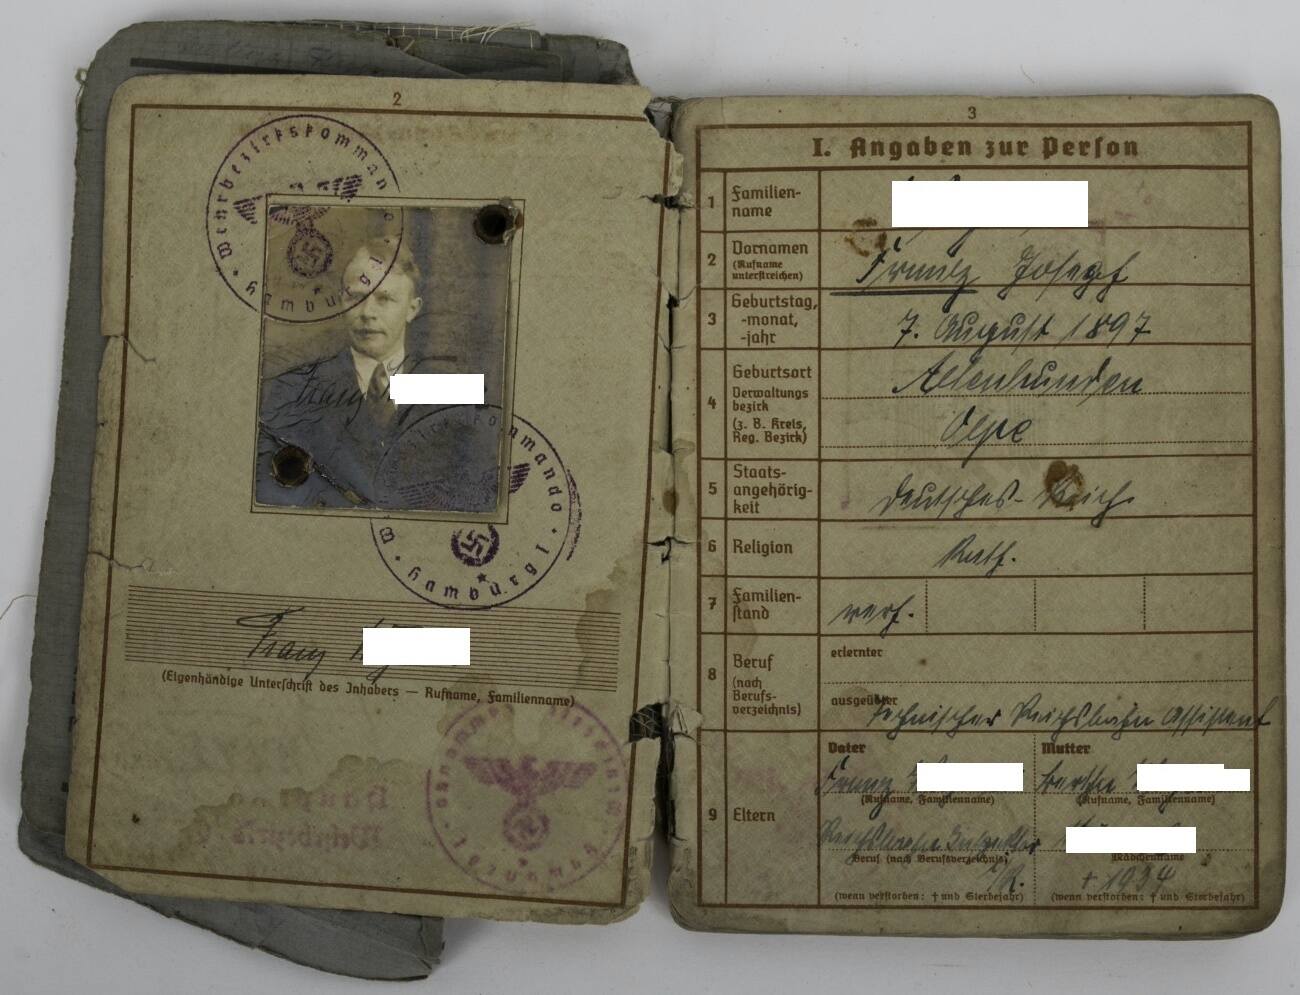 2
Wehrbezirkskommando
Hamburg I.
Franz
Wehrbezirkskommando
Hamburg I.
Franz
(Eigenhändige Unterschrift des Inhabers — Rufname, Familienname)
3
I. Angaben zur Person
1 Familien-
name
2 Vornamen
(Rufname
unterstreichen)
Franz Josef
3 Geburtstag,
-monat,
-jahr
7. August 1897
4 Geburtsort
Verwaltungs
bezirk
(z. B. Kreis,
Reg. Bezirk)
Altenhunden
Olpe
5 Staats-
angehörig-
keit
Deutsches-Reich
6 Religion
Kath.
7 Familien-
stand
verh.
8 Beruf
(nach
Berufs-
verzeichnis)
erlernter
ausgeübter
technischer Reichsbahn Assistent
9 Eltern
Vater
Mutter
Franz
Berthe
(Rufname, Familienname)
(Rufname, Familienname)
Reichsbahn Inspektor
Beruf (nach Berufsverzeichnis)
Mädchenname
i/R.
+ 1934
(wenn verstorben: † und Sterbejahr)
(wenn verstorben: † und Sterbejahr)